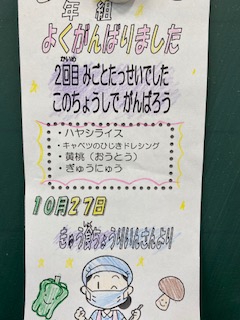 年 組
よくがんばりました
2回目 みごとたっせいでした
かいめ
このちょうしで がんばろう
・ハヤシライス
・キャベツのひじきドレッシング
・黄桃(おうとう)
・ぎゅうにゅう
10月27日
きゅう食ちょうりいんさんより